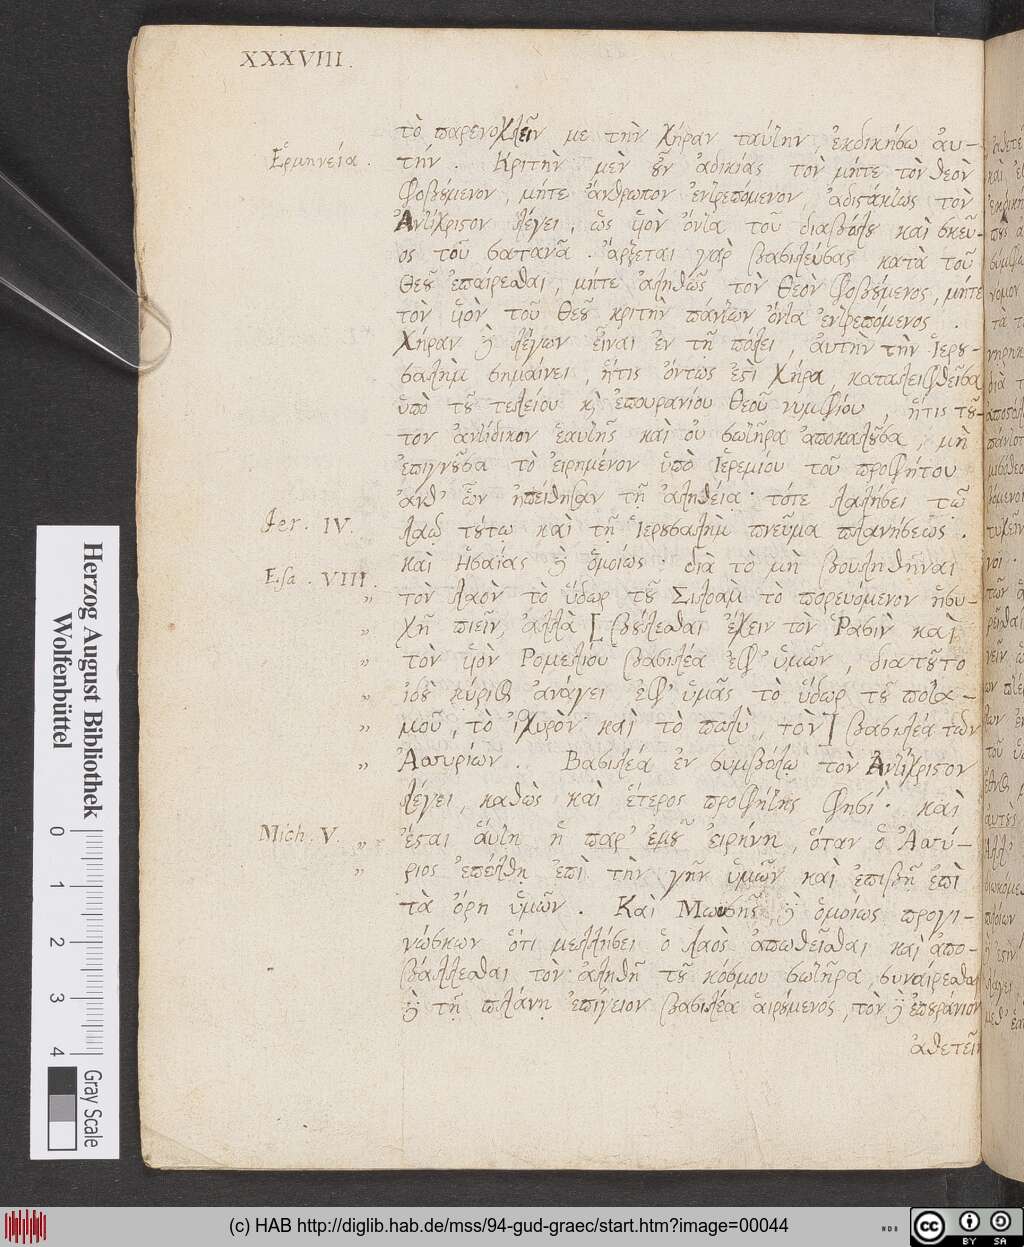 XXXVIII.
τὸ παρενοχλεῖν με τὴν χήραν ταύτην, ἐκδικήσω ἀυ-
Ἑρμηνεία. τήν. Κριτὴν μὲν ȣ̓͂ν ἀδικίας τὸν μήτε τὸν θεὸν
φοβȣ́μενον, μήτε ἄνθρωπον ἐντρεπόμενον, ἀδιστάκτως τὸν
Ἀντίχριστον λέγει, ὡς ὑιὸν ὄντα τοῦ διαβόλȣ καὶ σκεῦ-
ος τοῦ σατανᾶ. ἄρξεται γὰρ βασιλεύσας κατὰ τοῦ
Θεȣ͂ ἐπαίρεσθαι, μήτε ἀληθῶς τὸν Θεὸν φοβȣ́μενος, μήτε
τὸν ὑιὸν τοῦ Θεȣ͂ κριτὴν πάντων ὄντα ἐντρεπόμενος.
Χήραν δὲ λέγων εἶναι ἐν τῇ πόλει, ἀυτὴν τὴν Ἱερȣ-
σαλὴμ σημαίνει, ἥτις ὄντως ἐστὶ χήρα, καταλειφθεῖσα
ὑπὸ τȣ͂ τελείου κὶ ἐπουρανίου Θεοῦ νυμφίου, ἥτις τȣ͂-
τον ἀντίδικον ἑαυτῆς καὶ οὐ σωτῆρα ἀποκαλȣ͂σα, μὴ
ἐπιγνȣ͂σα τὸ εἰρημένον ὑπὸ Ἱερεμίου τοῦ προφήτου
ἀνθ' ὧν ἠπείθησαν τῇ ἀληθείᾳ· τότε λαλήσει τῷ
Jer. IV. λαῷ τȣ́τῳ καὶ τῇ Ἱερȣσαλὴμ πνεῦμα πλανήσεως.
καὶ Ἡσαίας δὲ ὁμοίως· διὰ τὸ μὴ βουληθῆναι
Esa. VIII. " τὸν λαὸν τὸ ὕδωρ τȣ͂ Σιλοὰμ τὸ πορευόμενον ἡσυ-
" χῆ πιεῖν, ἀλλὰ [βȣ́λεσθαι ἔχειν τὸν Ῥασὶν καὶ
" τὸν ὑιὸν Ρομελίου βασιλέα ἐφ' ὑμῶν, διατȣ͂το
" ἰδȣ̀ κύριος ἀνάγει ἐφ' ὑμᾶς τὸ ὕδωρ τȣ͂ ποτα-
" μοῦ, τὸ ἰσχυρὸν καὶ τὸ πολὺ τὸν] βασιλέα τῶν
" Ἀσσυρίων. Βασιλέα ἐν συμβόλῳ τὸν Ἀντίχριστον
λέγει, καθὼς καὶ ἕτερος προφήτης φησί· καὶ
Mich. V. " ἔσται ἅυτη ἡ παρ' ἐμȣ͂ εἰρήνη, ὅταν ὁ Ἀσσύ-
" ριος ἐπέλθῃ ἐπὶ τὴν γῆν ὑμῶν καὶ ἐπιβῇ ἐπὶ
τὰ ὄρη ὑμῶν. Καὶ Μωυσῆς δὲ ὁμοίως προγι-
νώσκων ὅτι μελλήσει ὁ λαὸς ἀπωθεῖσθαι καὶ ἀπο-
βάλλεσθαι τὸν ἀληθῆ τȣ͂ κόσμου σωτῆρα, συναίρεσθαι
δὲ τῇ πλάνῃ ἐπίγειον βασιλέα αἱρȣ́μενος, τὸν δὲ ἐπȣράνιον
ἀθετεῖν
Herzog August Bibliothek
Wolfenbüttel
0 1 2 3 4
Gray Scale
(c) HAB http://diglib.hab.de/mss/94-gud-graec/start.htm?image=00044
cc BY SA